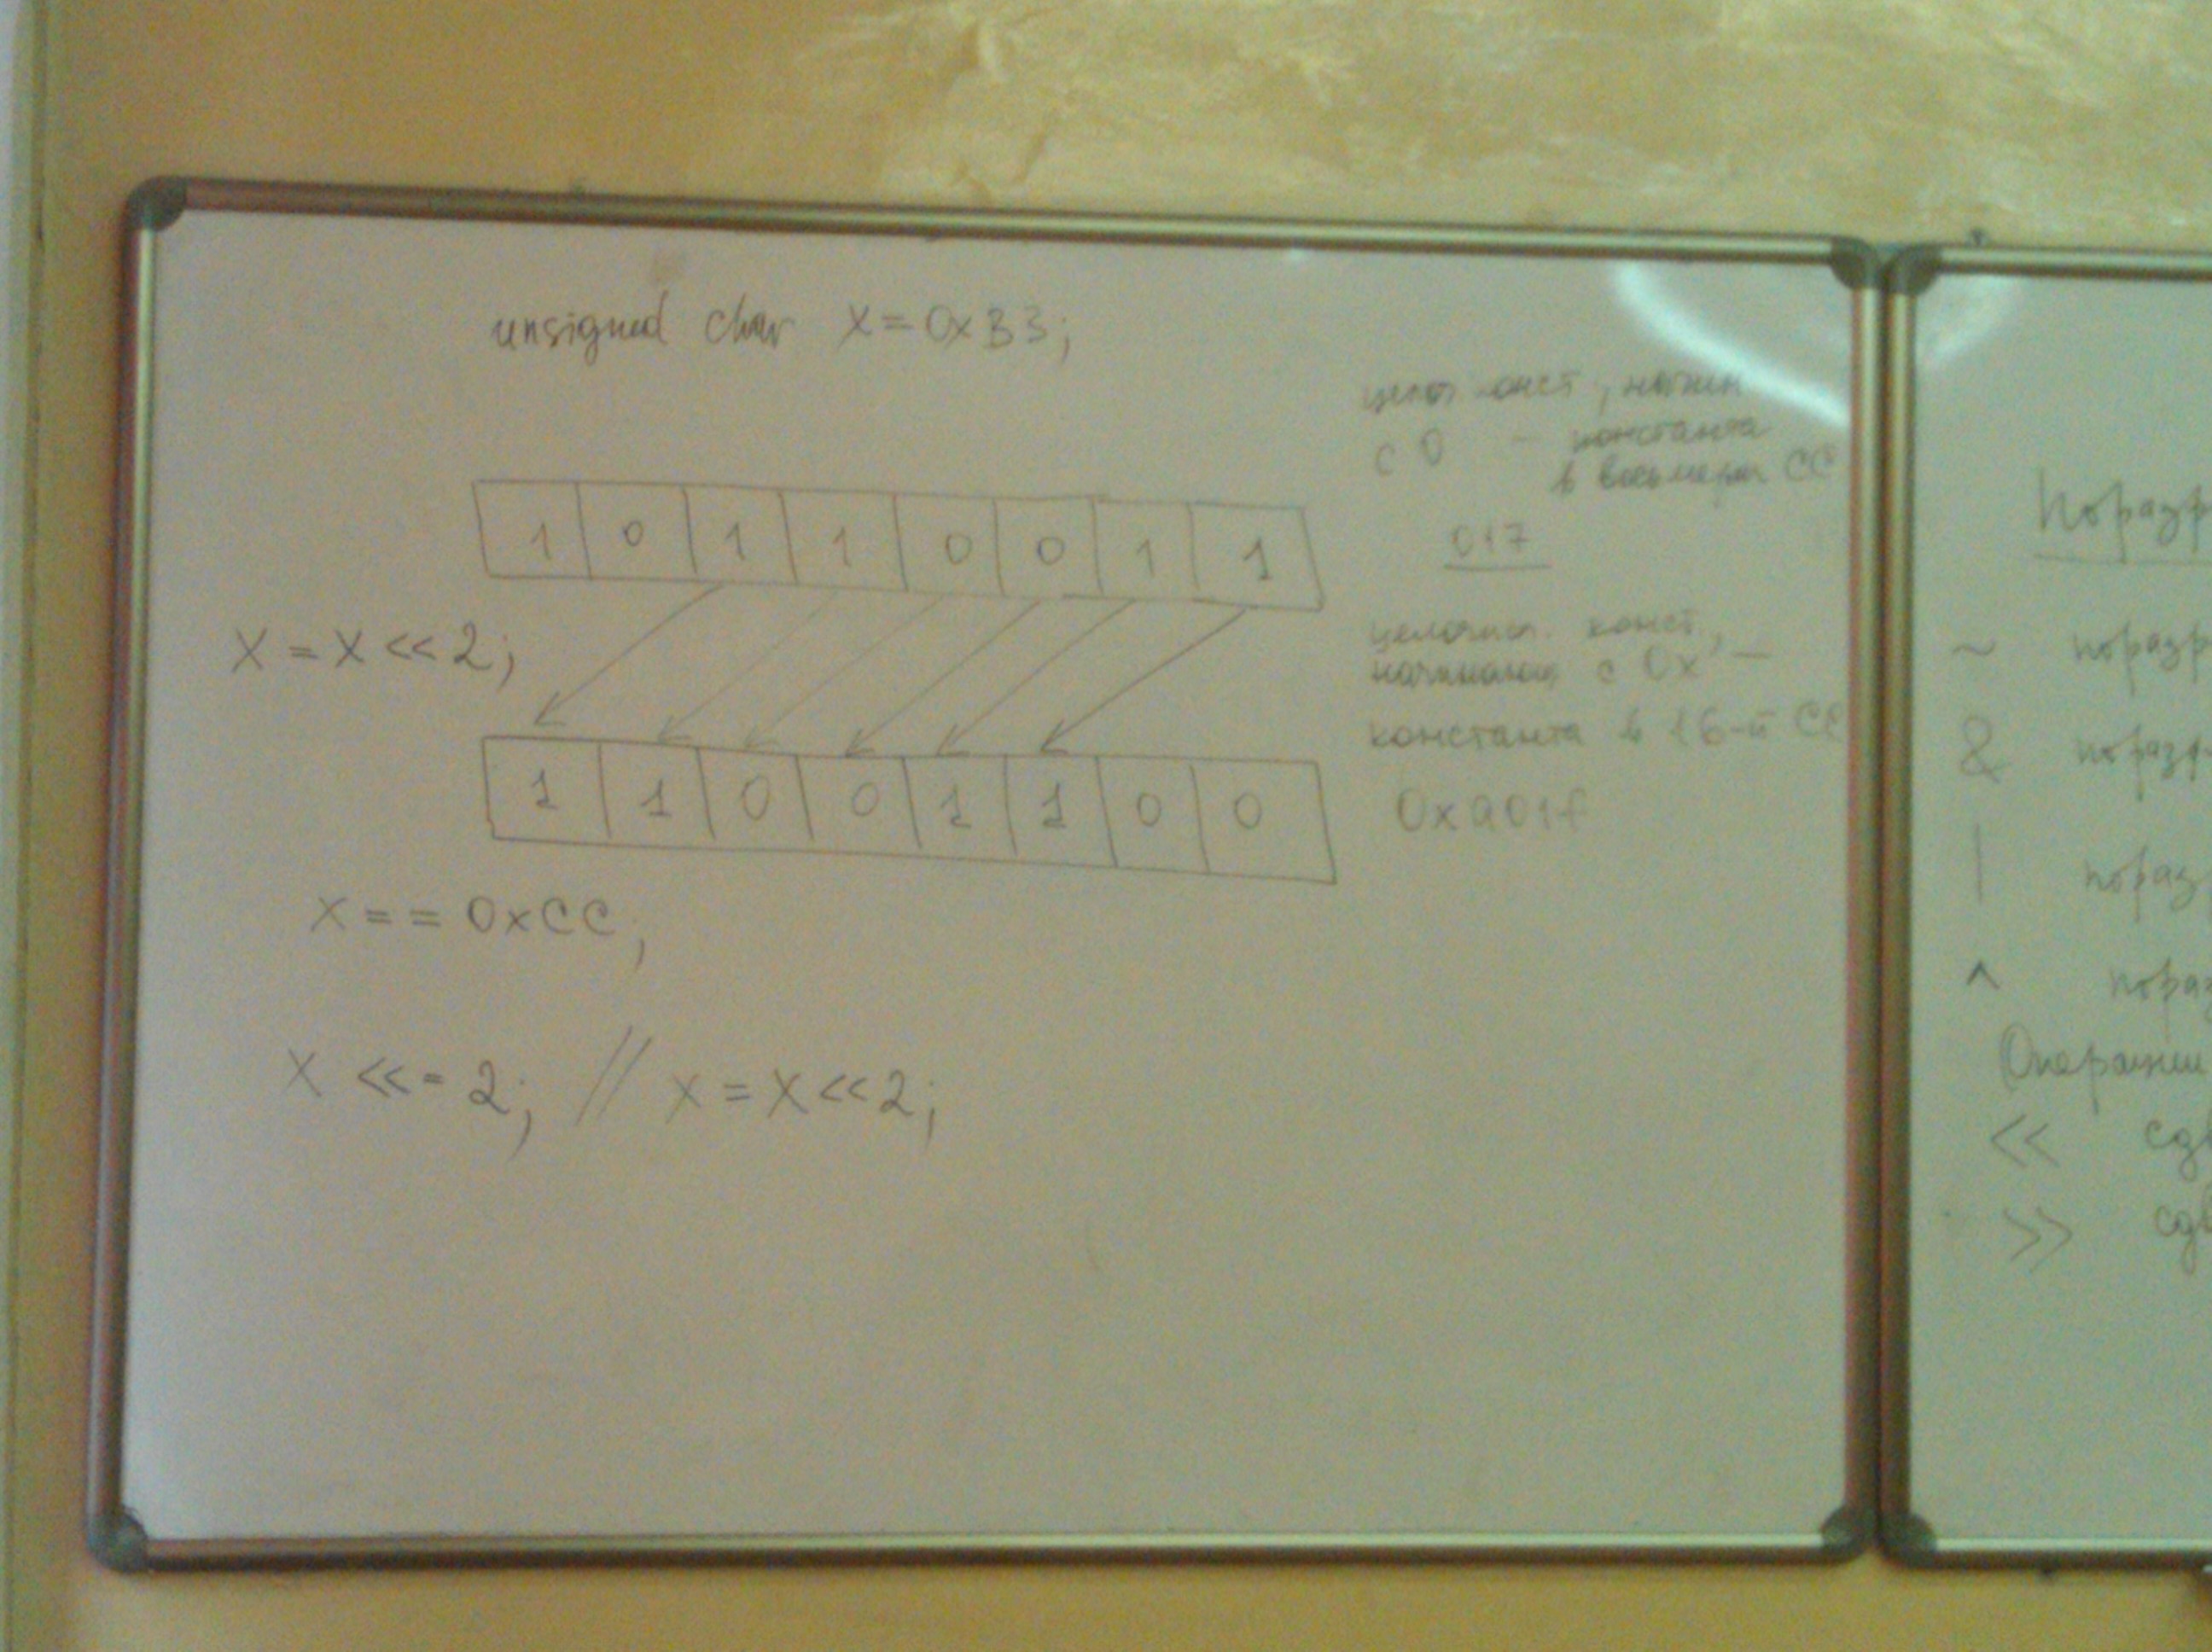 unsigned char X = 0xB3;
1 0 1 1 0 0 1 1
X = X << 2;
1 1 0 0 1 1 0 0
X == 0xCC;
X <<= 2; // X = X << 2;
с 0 - константа
в восьмеричн СС
017
целочисл. конст,
начинающ с 0x —
константа в 16-й СС
0xa01f
Поразр
~ поразр
& поразр
| пораз
^ пораз
Операции
<< сдв
>> сдв